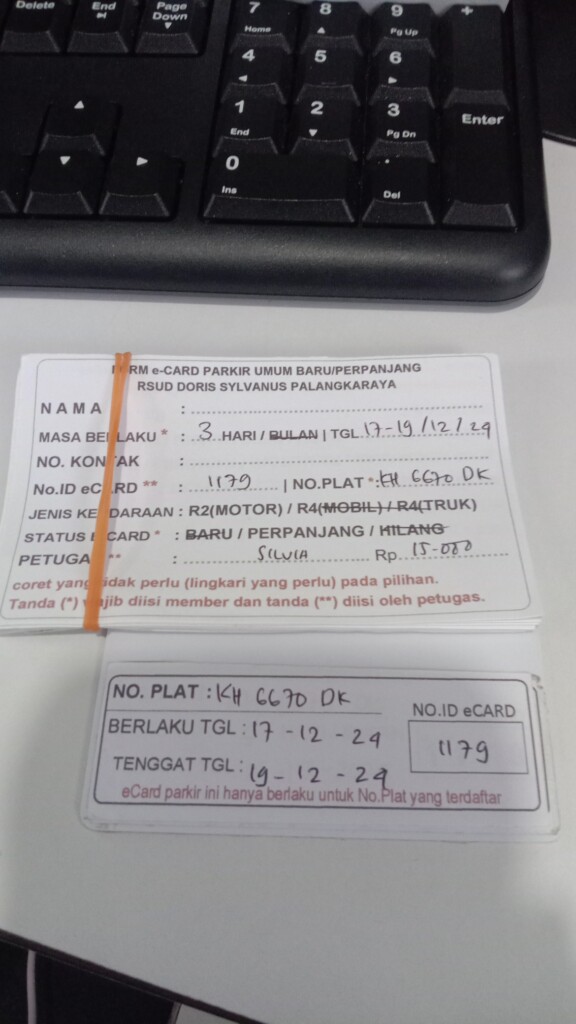 Delete End Page Down 7 Home 8 9 Pg Up +
4 5 6
1 End 2 3 Pg Dn Enter
0 Ins . Del
FORM e-CARD PARKIR UMUM BARU/PERPANJANG
RSUD DORIS SYLVANUS PALANGKARAYA
NAMA :
MASA BERLAKU * : 3 HARI / BULAN | TGL 17-19/12/24
NO. KONTAK :
No.ID eCARD ** : 1179 | NO.PLAT *: KH 6670 DK
JENIS KENDARAAN : R2(MOTOR) / R4(MOBIL) / R4(TRUK)
STATUS eCARD * : BARU / PERPANJANG / HILANG
PETUGAS ** : SILVIA Rp. 15-000
coret yang tidak perlu (lingkari yang perlu) pada pilihan.
Tanda (*) wajib diisi member dan tanda (**) diisi oleh petugas.
NO. PLAT : KH 6670 DK
NO.ID eCARD
BERLAKU TGL : 17 - 12 - 24
1179
TENGGAT TGL : 19 - 12 - 24
eCard parkir ini hanya berlaku untuk No.Plat yang terdaftar